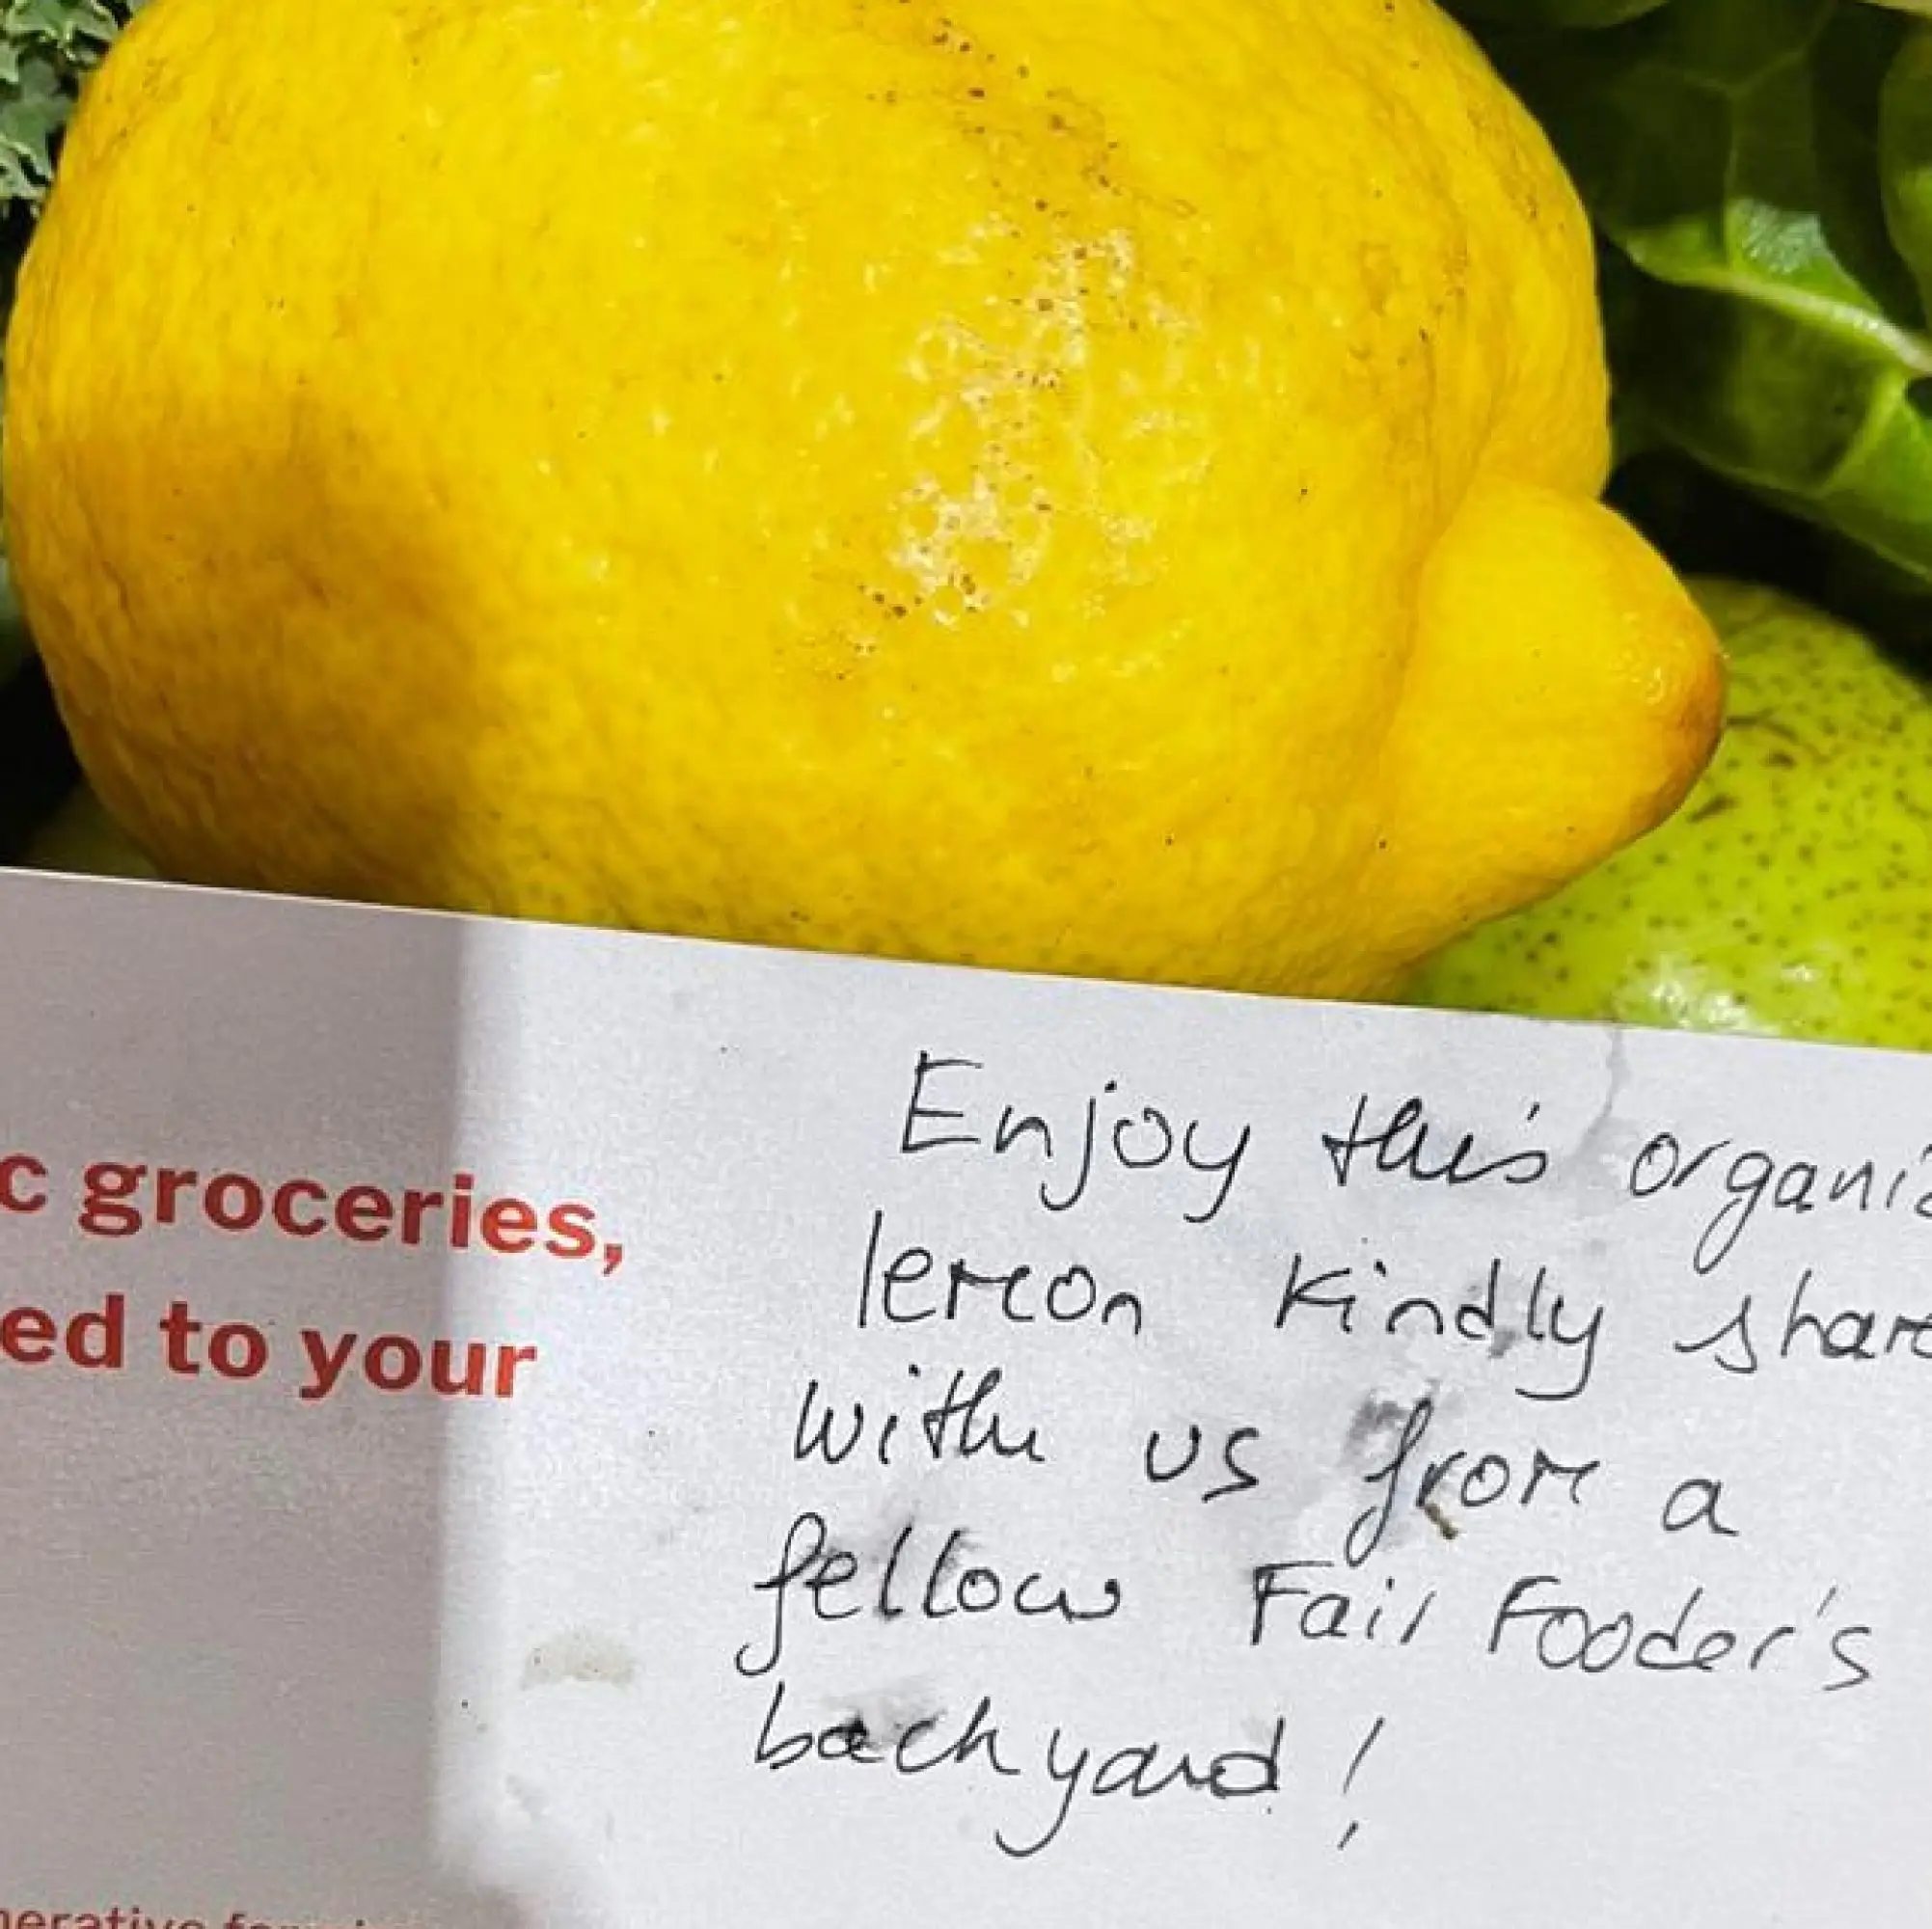 c groceries,
ed to your
nerative farmi
Enjoy this organic
lemon kindly share
with us from a
fellow Fair Fooder's
backyard!